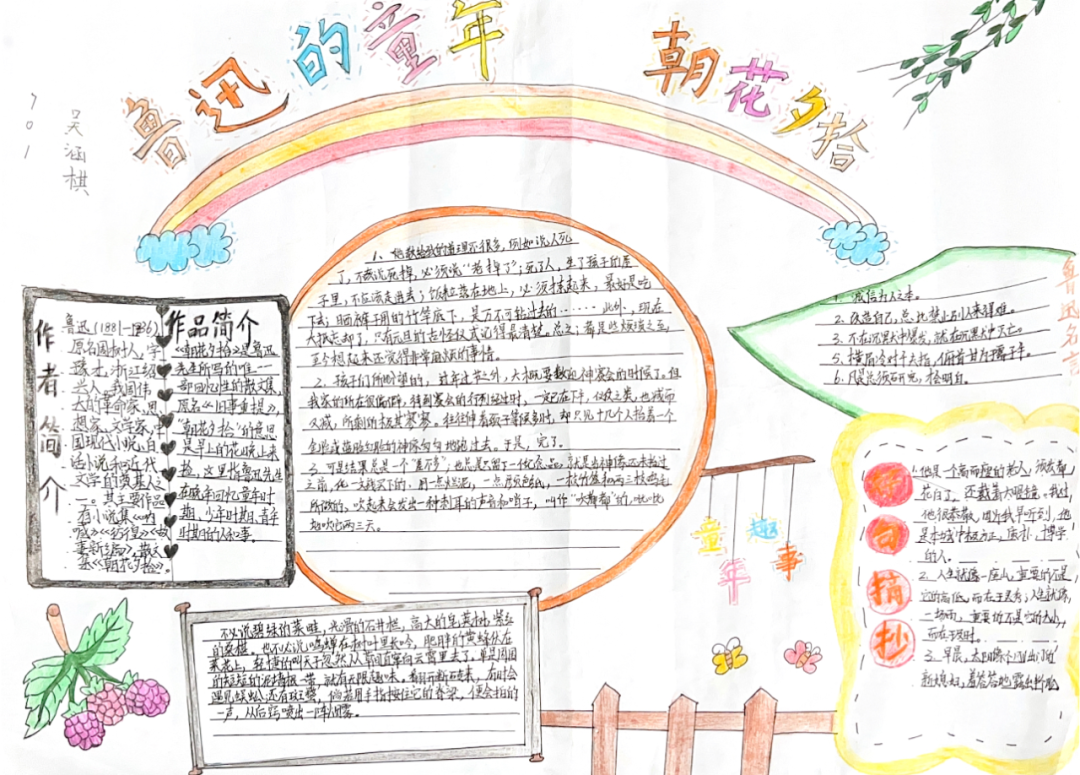 鲁迅的童年 朝花夕拾
701
吴涵棋
作者简介
鲁迅(1881-1936)
原名周树人,字
豫才,浙江绍
兴人,我国伟
大的革命家,思
想家,文学家,中
国现代小说,白
话小说和近代
文学的奠基人之
一。其主要作品
有小说集《呐
喊》《彷徨》《故
事新编》,散文
集《朝花夕拾》。
作品简介
《朝花夕拾》是鲁迅
先生所写的唯一一
部回忆性的散文集,
原名《旧事重提》,
"朝花夕拾"的意思
是早上的花晚上来
捡,这里指鲁迅先生
在晚年回忆童年时
期,少年时期,青年
时期的人和事。
1、她教给我的道理不很多,例如说人死
了,不该说死掉,必须说"老掉了";死了人,生了孩子的屋
子里,不应该走进去;饭粒落在地上,必须拣起来,最好是吃
下去;晒裤子用的竹竿底下,是万不可钻过去的……此外,现在
大抵忘却了,只有元旦的古怪仪式记得最清楚。总之:都是些烦琐之至,
至今想起来还觉得非常麻烦的事情。
2、孩子们所盼望的,过年过节之外,大概要数迎神赛会的时候了。但
我家的所在很偏僻,待到赛会的行列经过时,一定已在下午,仪仗之类,也减而
又减,所剩的极其寥寥。往往伸着颈子等候多时,却只见十几个人抬着一个
金脸或蓝脸红脸的神像匆匆地跑过去。于是,完了。
3、可是结果总是一个"差不多",也总是只留下一个纪念品,就是当神像还未抬过
之前,化一文钱买下的,用一点烂泥,一点颜色纸,一枝竹签和两三枝鸡毛
所做的,吹起来会发出一种刺耳的声音的哨子,叫作"吹都都"的,吡吡
地吹它两三天。
不必说碧绿的菜畦,光滑的石井栏,高大的皂荚树,紫红
的桑椹,也不必说鸣蝉在树叶里长吟,肥胖的黄蜂伏在
菜花上,轻捷的叫天子忽然从草间直窜向云霄里去了。单是周围
的短短的泥墙根一带,就有无限趣味。翻开断砖来,有时会
遇见蜈蚣,还有斑蝥,倘若用手指按住它的脊梁,便会拍的
一声,从后窍喷出一阵烟雾。
鲁迅名言
1、诚信为人之本。
2、改造自己,总比禁止别人来得难。
3、不在沉默中爆发,就在沉默中灭亡。
5、横眉冷对千夫指,俯首甘为孺子牛。
6、凡是总须研究,才会明白。
童年趣事
好句摘抄
1、他是一个高而瘦的老人,须发都
花白了,还戴着大眼镜。我对
他很恭敬,因为我早听到,他
是本城中极方正,质朴,博学
的人。
2、人生就像一座山,重要的不是
它的高低,而在于灵秀;人生就像
一场雨,重要的不是它的大小,
而在于及时。
3、早晨,太阳像